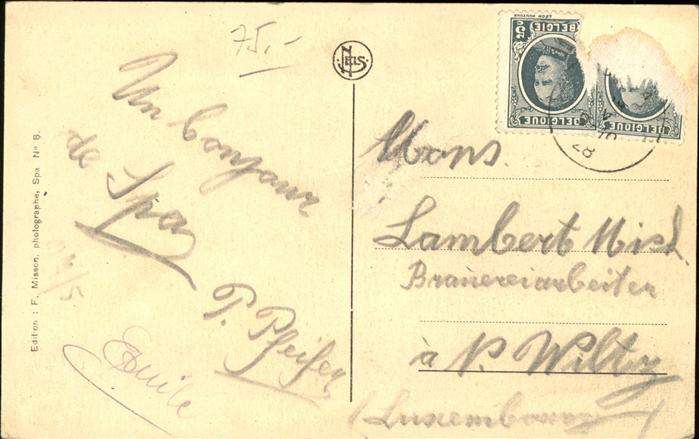 75.-
Un bonjour
de Spa
P. Pfeifer
Emile
Edition : F. Misson, photographe, Spa N° 8.
NELS
5c
BELGIE
BELGIQUE
BELGIQUE
28
Mons.
Lambert Mich.
Brauereiarbeiter
à N. Wiltz
(Luxembourg)